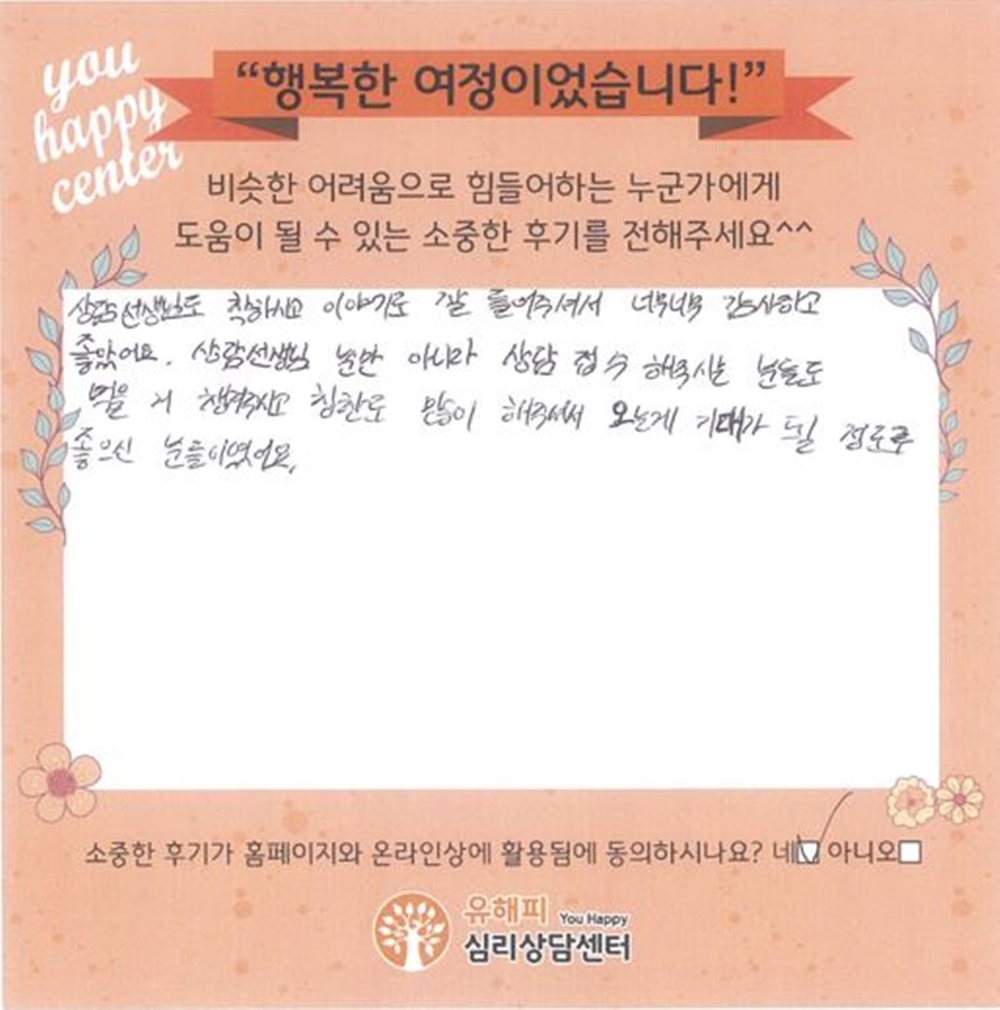 you
happy
center
“행복한 여정이었습니다!”
비슷한 어려움으로 힘들어하는 누군가에게
도움이 될 수 있는 소중한 후기를 전해주세요^^
상담선생님도 착하시고 이야기도 잘 들어주셔서 너무너무 감사하고
좋았어요. 상담선생님 뿐만 아니라 상담 접수 해주시는 분들도
먹을 거 챙겨주시고 칭찬도 많이 해주셔서 오는게 기대가 될 정도로
좋으신 분들이였어요.
소중한 후기가 홈페이지와 온라인상에 활용됨에 동의하시나요? 네 아니오
유해피 You Happy
심리상담센터